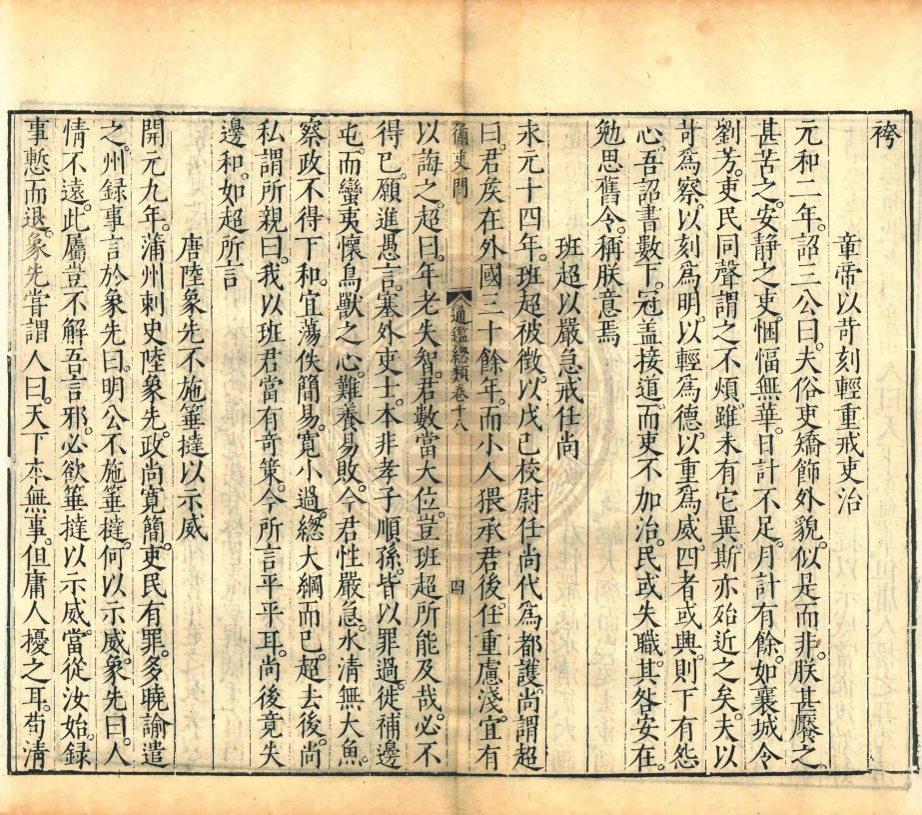 袴
章帝以苛刻輕重戒吏治
元和二年。詔三公曰。夫俗吏矯飾外貌。似是而非。朕甚饜之。
甚苦之。安靜之吏。悃愊無華。日計不足。月計有餘。如襄城令
劉芳。吏民同聲謂之不煩。雖未有它異。斯亦殆近之矣。夫以
苛爲察。以刻爲明。以輕爲德。以重爲威。四者或興。則下有怨
心。吾詔書數下。冠盖接道。而吏不加治。民或失職。其咎安在。
勉思舊令。稱朕意焉
班超以嚴急戒任尚
永元十四年。班超被徴。以戊已校尉任尚代爲都護。尚謂超
曰。君矦在外國三十餘年。而小人猥承君後。任重慮淺。宜有
循吏門
通鑑緫類卷十八
四
以誨之。超曰。年老失智。君數當大位。豈班超所能及哉。必不
得已。願進愚言。塞外吏士。本非孝子順孫。皆以罪過。徙補邊
屯。而蠻夷懷鳥獸之心。難養易敗。今君性嚴急。水清無大魚。
察政不得下和。宜蕩佚簡易。寛小過。緫大綱而已。超去後。尚
私謂所親曰。我以班君當有竒策。今所言平平耳。尚後竟失
邊和。如超所言
唐陸象先不施箠撻以示威
開元九年。蒲州刺史陸象先。政尚寛簡。吏民有罪。多曉諭遣
之。州録事言於象先曰。明公不施箠撻。何以示威。象先曰。人
情不遠。此屬豈不解吾言邪。必欲箠撻以示威。當從汝始。録
事慙而退。象先嘗謂人曰。天下本無事。但庸人擾之耳。苟清